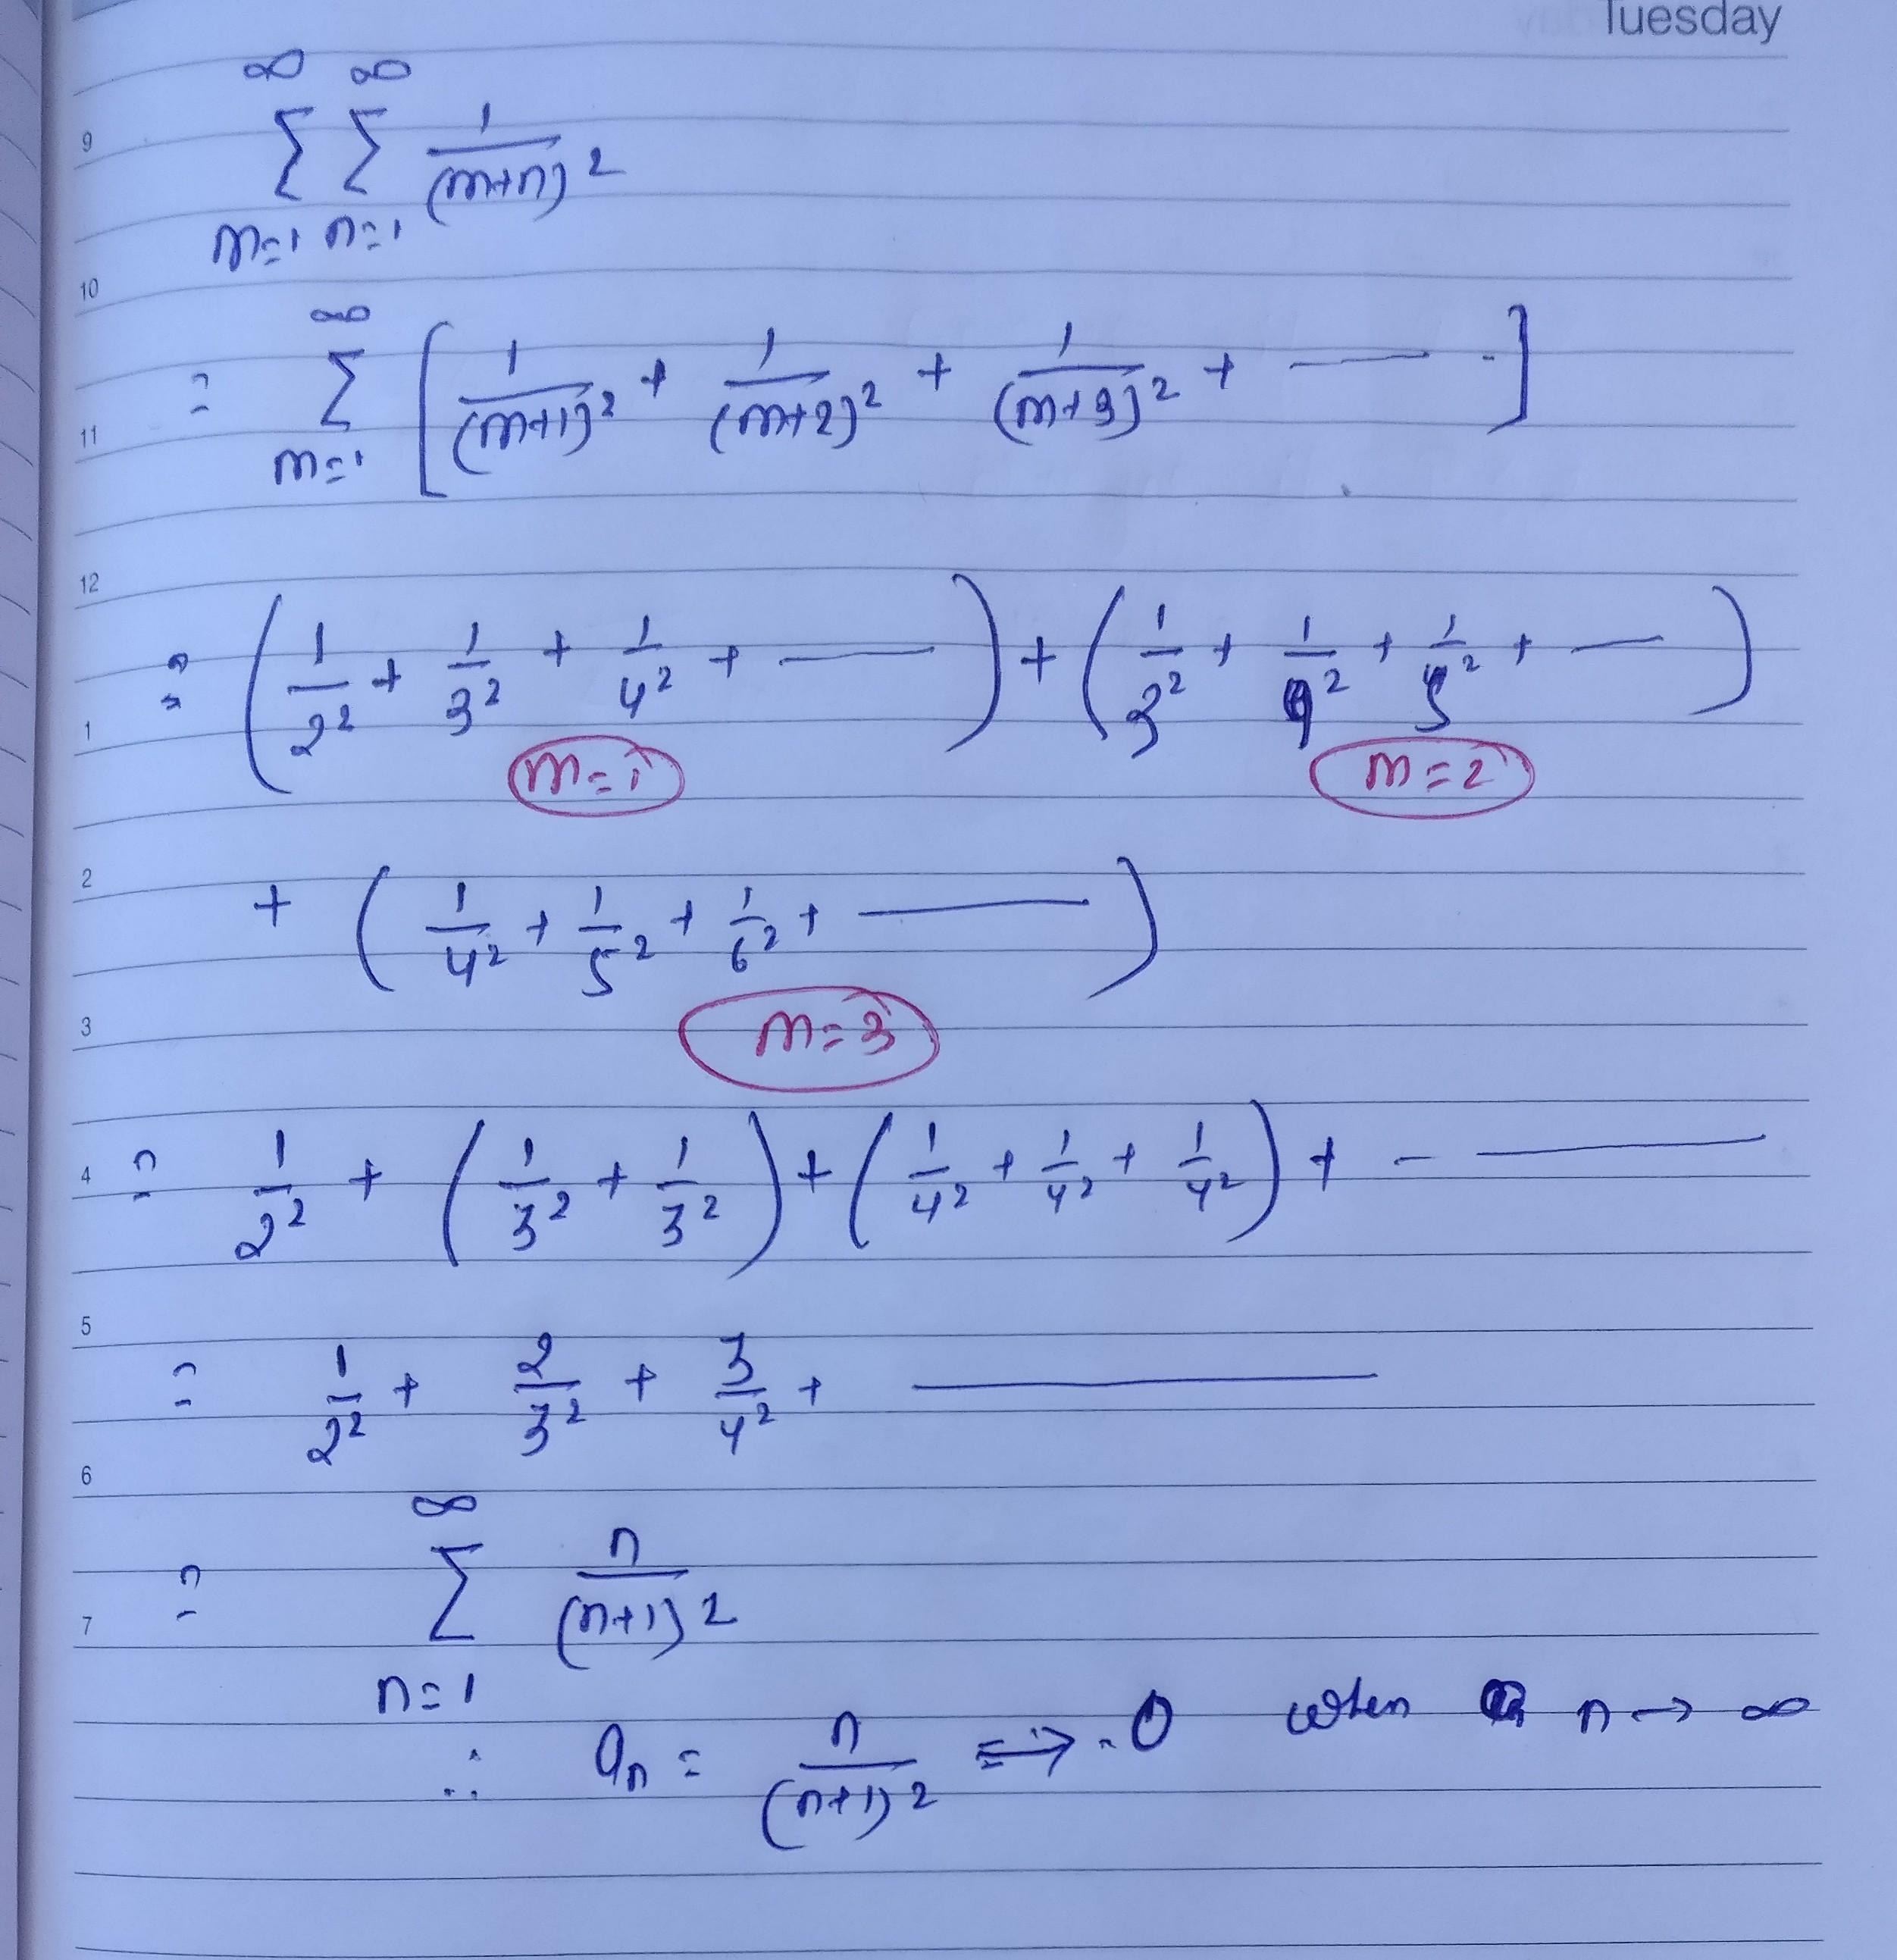 Tuesday
9
∞ ∞
Σ Σ 1/(m+n)²
m=1 n=1
10
∞
11
= Σ [ 1/(m+1)² + 1/(m+2)² + 1/(m+3)² + —— - ]
m=1
12
1
= ( 1/2² + 1/3² + 1/4² + —— ) + ( 1/3² + 1/4² + 1/5² + — )
m=1 m=2
2
+ ( 1/4² + 1/5² + 1/6² + —— )
3
m=3
4
= 1/2² + ( 1/3² + 1/3² ) + ( 1/4² + 1/4² + 1/4² ) + - ——
5
= 1/2² + 2/3² + 3/4² + ——
6
∞
7
= Σ n/(n+1)²
n=1
∴ an = n/(n+1)² ⟹ 0 when n → ∞